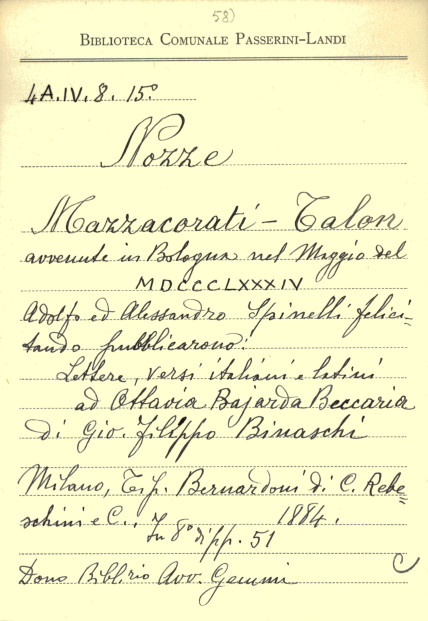 58)
BIBLIOTECA COMUNALE PASSERINI-LANDI
4A.IV.8.15º
Nozze
Mazzacorati - Talon
avvenute in Bologna nel Maggio del
MDCCCLXXXIV
Adolfo ed Alessandro Spinelli felici-
tando pubblicarono:
Lettere, versi italiani e latini
ad Ottavia Bajarda Beccaria
di Gio. Filippo Binaschi
Milano, Tip. Bernardoni di C. Rebe=
schini e C., 1884.
In 8º di pp. 51
C
Dono Bibl.rio Avv. Gemmi